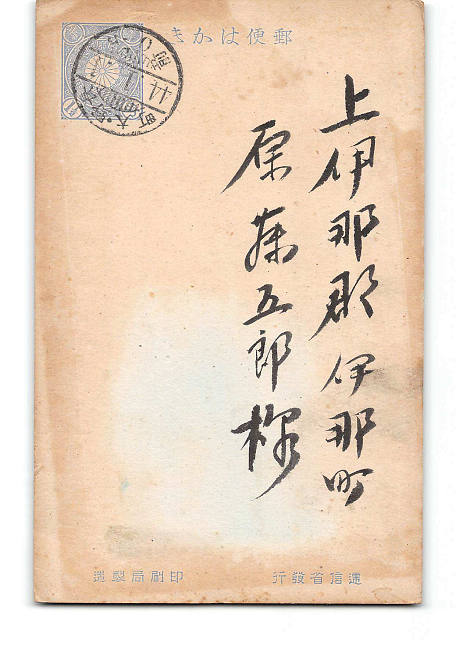 郵便はかき
上伊那郡伊那町
原藤五郎様
44
遞信省發行
印刷局製造